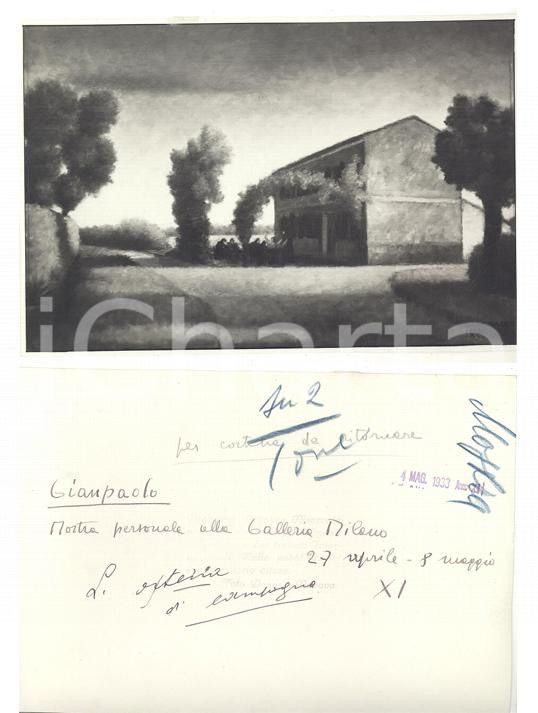 iCharta
su 2
per cortesia da ritornare
4 MAG. 1933 Anno XI
Gianpaolo
Mostra personale alla Galleria Milano
27 aprile - 8 maggio
XI
L' osteria
di campagna